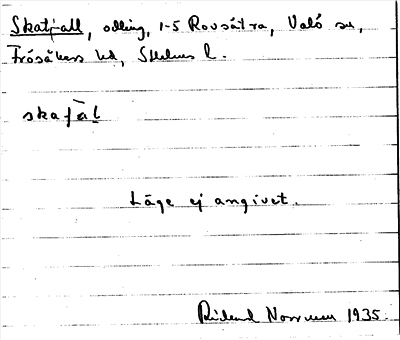 Skatj-all, odling, 1-5 Rovsätra, Valö sn,
Frösåkers hd, Sthlms l.
skafàl
Läge ej angivet.
Rickard Norrman 1935.